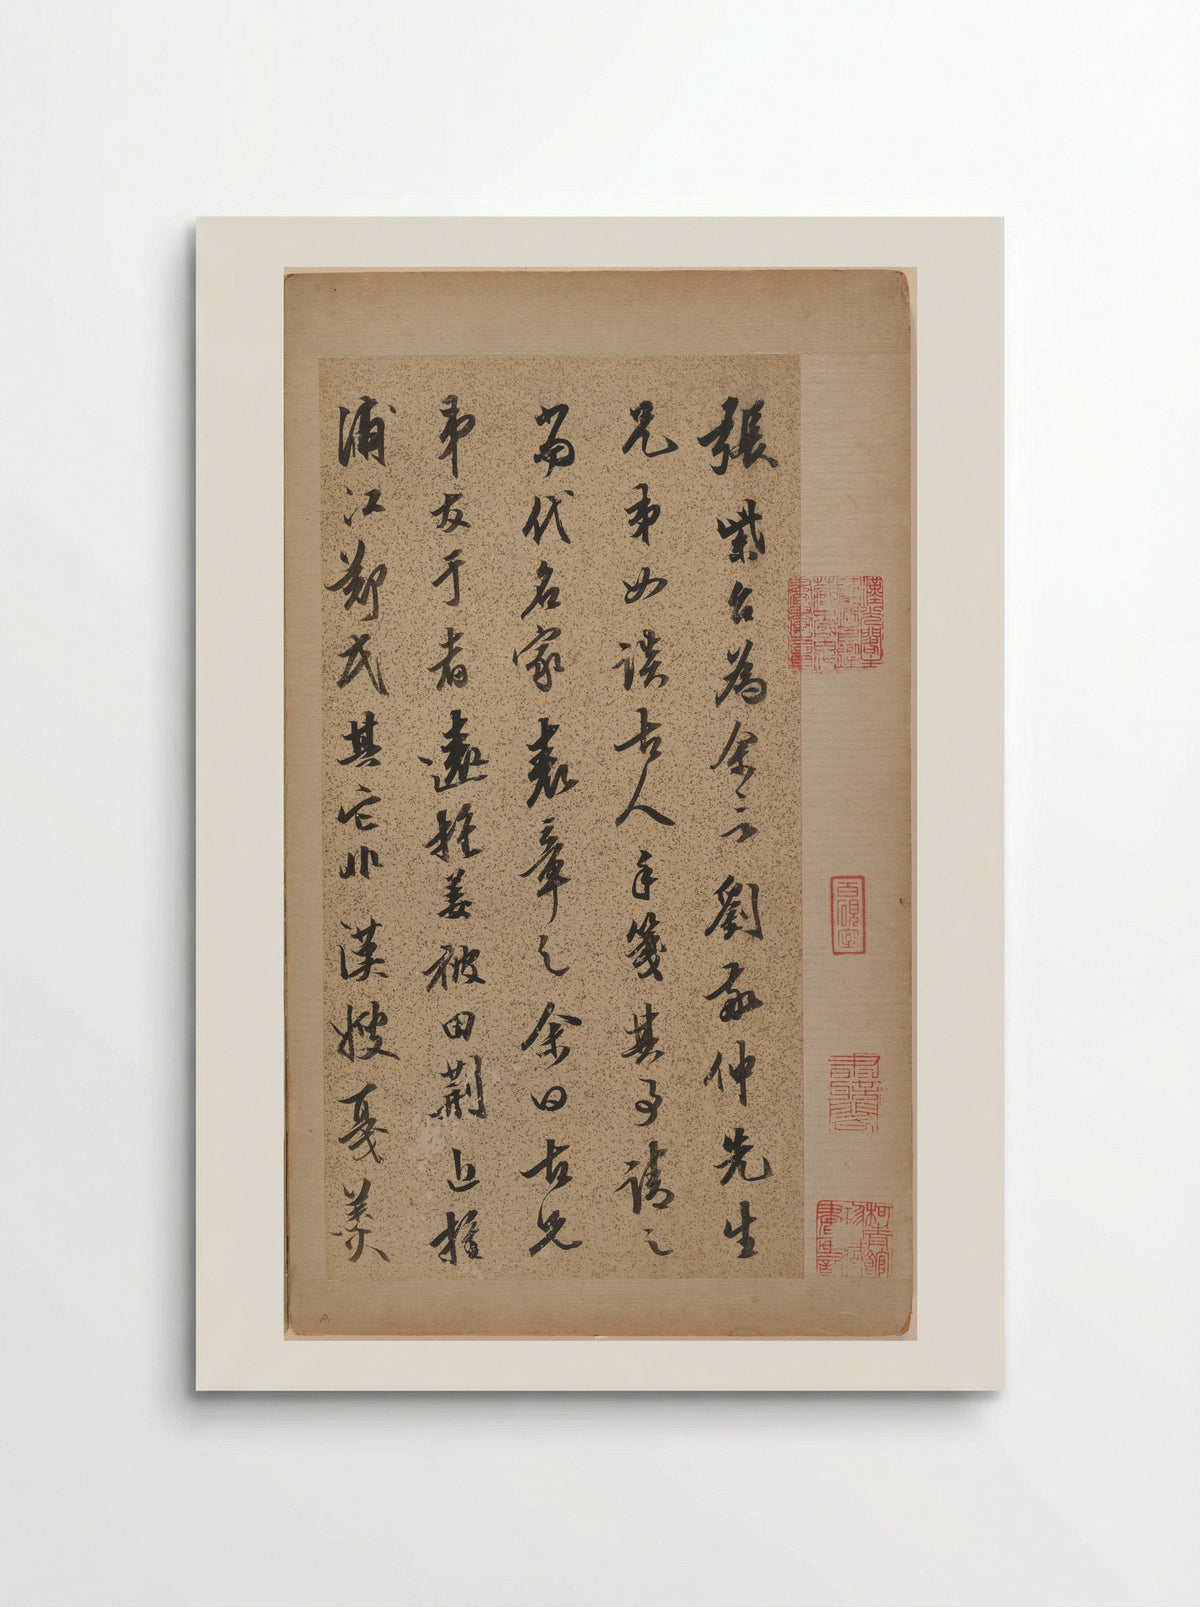 張紫台為余言劉仲先生
兄弟如談古人手箋其子請之
當代名家表章之余曰古兄
弟友于者遠推姜被田荊近推
浦江鄭氏其它非漢嫂戛羹
百硯室